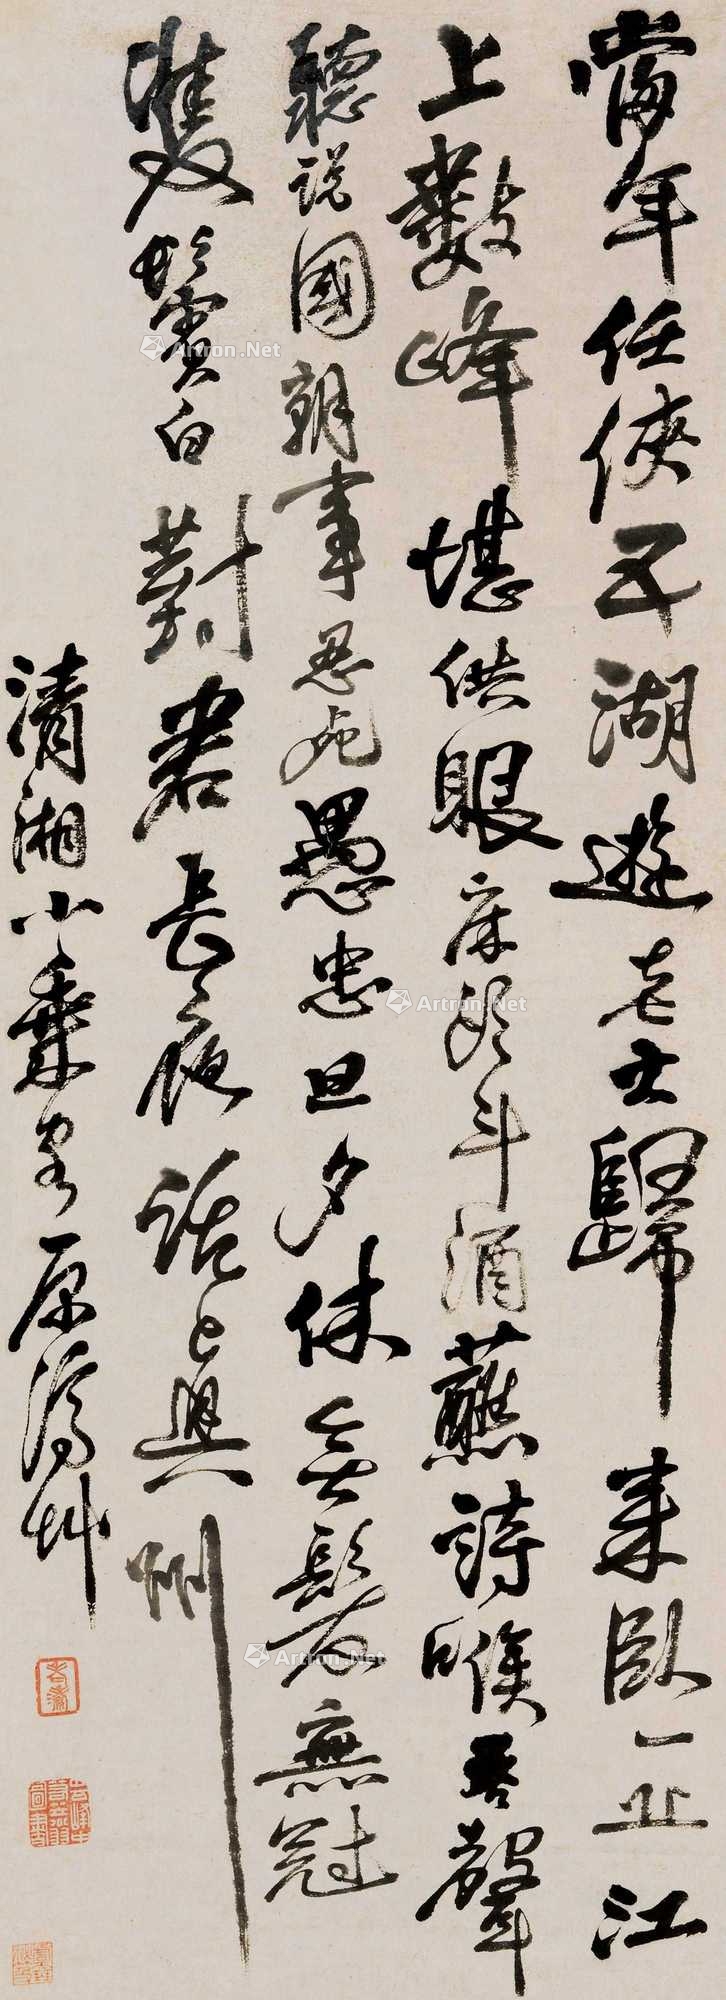 當年任俠五湖遊老去歸來臥一丘江
上數峰堪供眼床頭斗酒蘸詩喉吞聲
聽說國朝事忍死愚忠旦夕休無髮無冠
雙鬢白對君長夜話與州
清湘小乘客原濟草
Artron.Net
Artron.Net
Artron.Net